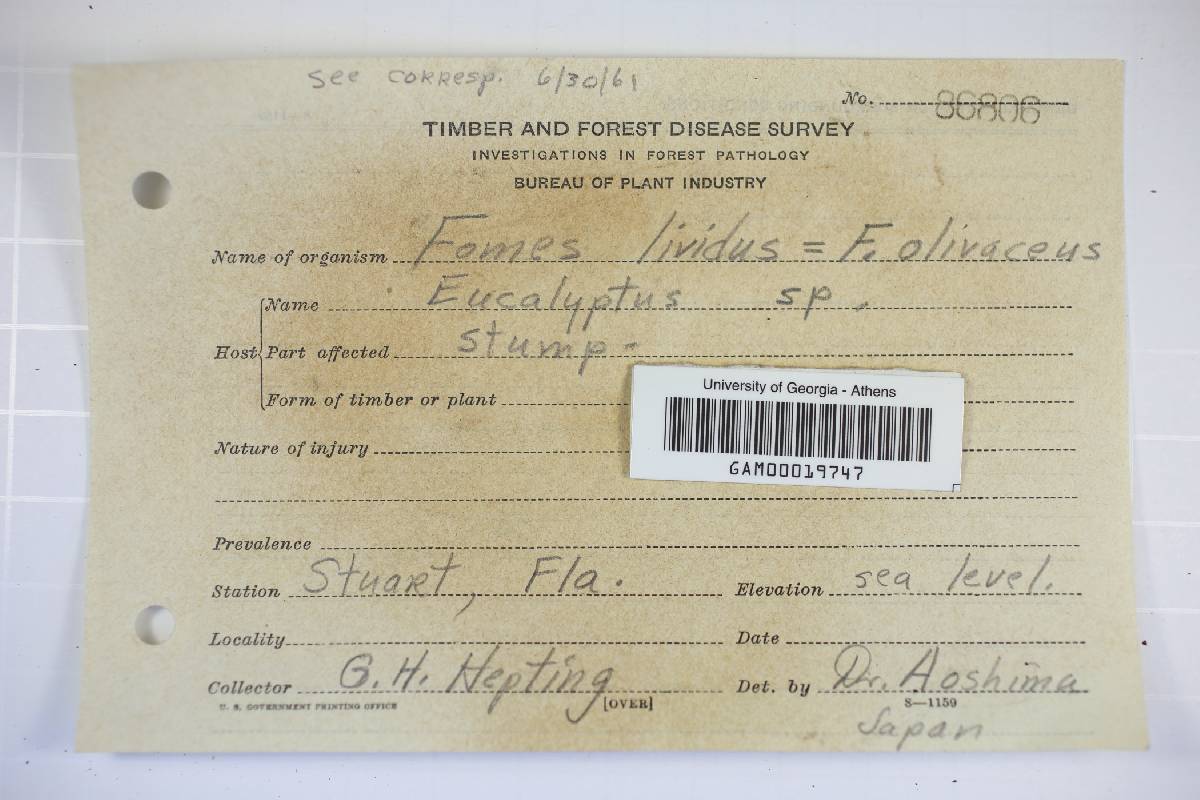 See corresp. 6/30/61
No. 86806
TIMBER AND FOREST DISEASE SURVEY
INVESTIGATIONS IN FOREST PATHOLOGY
BUREAU OF PLANT INDUSTRY
Name of organism Fomes lividus = F. olivaceus
Host Name Eucalyptus sp.
Part affected stump-
Form of timber or plant
University of Georgia - Athens
GAM00019747
Nature of injury
Prevalence
Station Stuart, Fla. Elevation sea level.
Locality Date
Collector G. H. Hepting Det. by Dr. Aoshima
U. S. GOVERNMENT PRINTING OFFICE [OVER] 8—1159
Japan